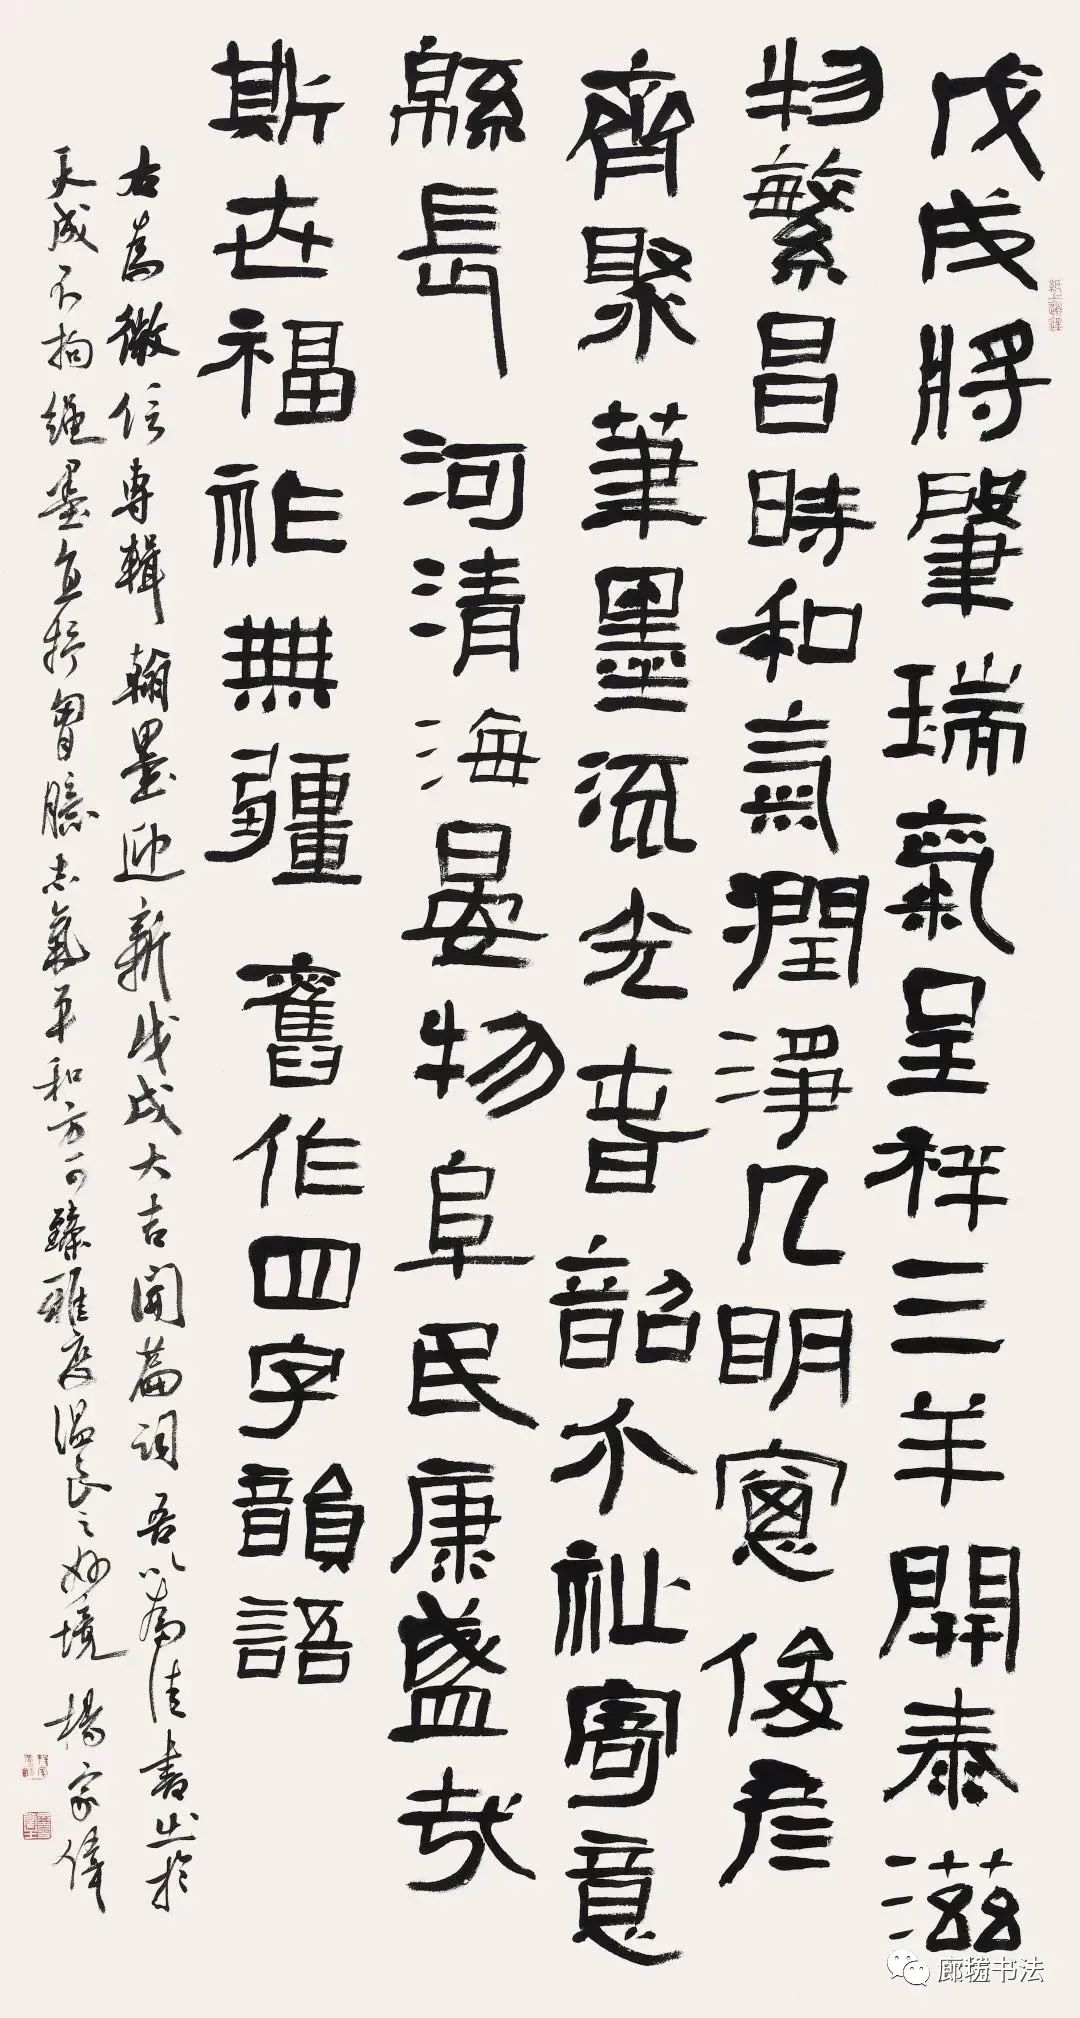 戊戌將肇瑞氣呈祥三羊開泰滋
物繁昌時和氣潤淨几明窻俊彥
齊聚筆墨流光春韶介祉寄意
緜長河清海晏物阜民康盛哉
斯世福祚無疆舊作四字韻語
右為微信專輯翰墨迎新戊戌大吉開篇詞吾以為佳書出於
天成不拘繩墨直抒胷臆志氣平和方可臻雅度溫良之妙境楊家偉
书法